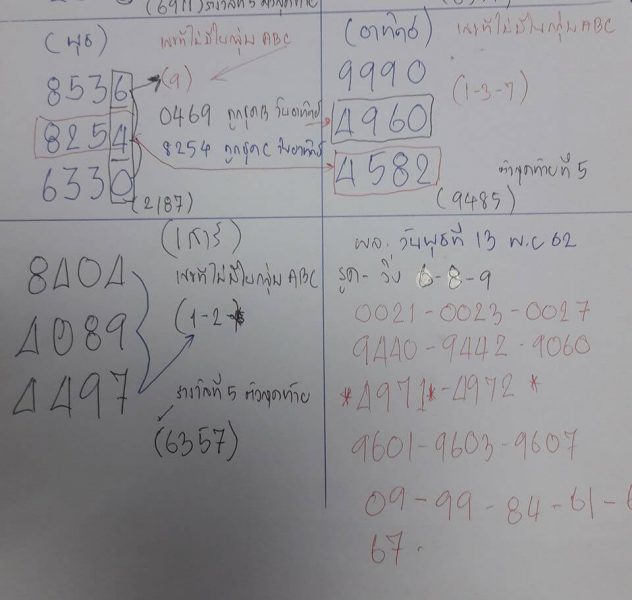 (พุธ)
เลขที่ไม่มีในกลุ่ม ABC
8536
(9)
0469 ถูกชุด B วันอาทิตย์
8254
8254 ถูกชุด C วันอาทิตย์
6330
(2187)
(อาทิตย์)
เลขที่ไม่มีในกลุ่ม ABC
9990
(1-3-7)
4960
4582
ตัวสุดท้ายที่ 5
(9485)
(เสาร์)
8404
เลขที่ไม่มีในกลุ่ม ABC
4089
(1-2-
4497
รางวัลที่ 5 ตัวสุดท้าย
(6357)
ผล. วันพุธที่ 13 พ.ย 62
รูด - วิ่ง 6-8-9
0021-0023-0027
9440-9442-9060
*4971*-4972 *
9601-9603-9607
09-99-84-61-
67.